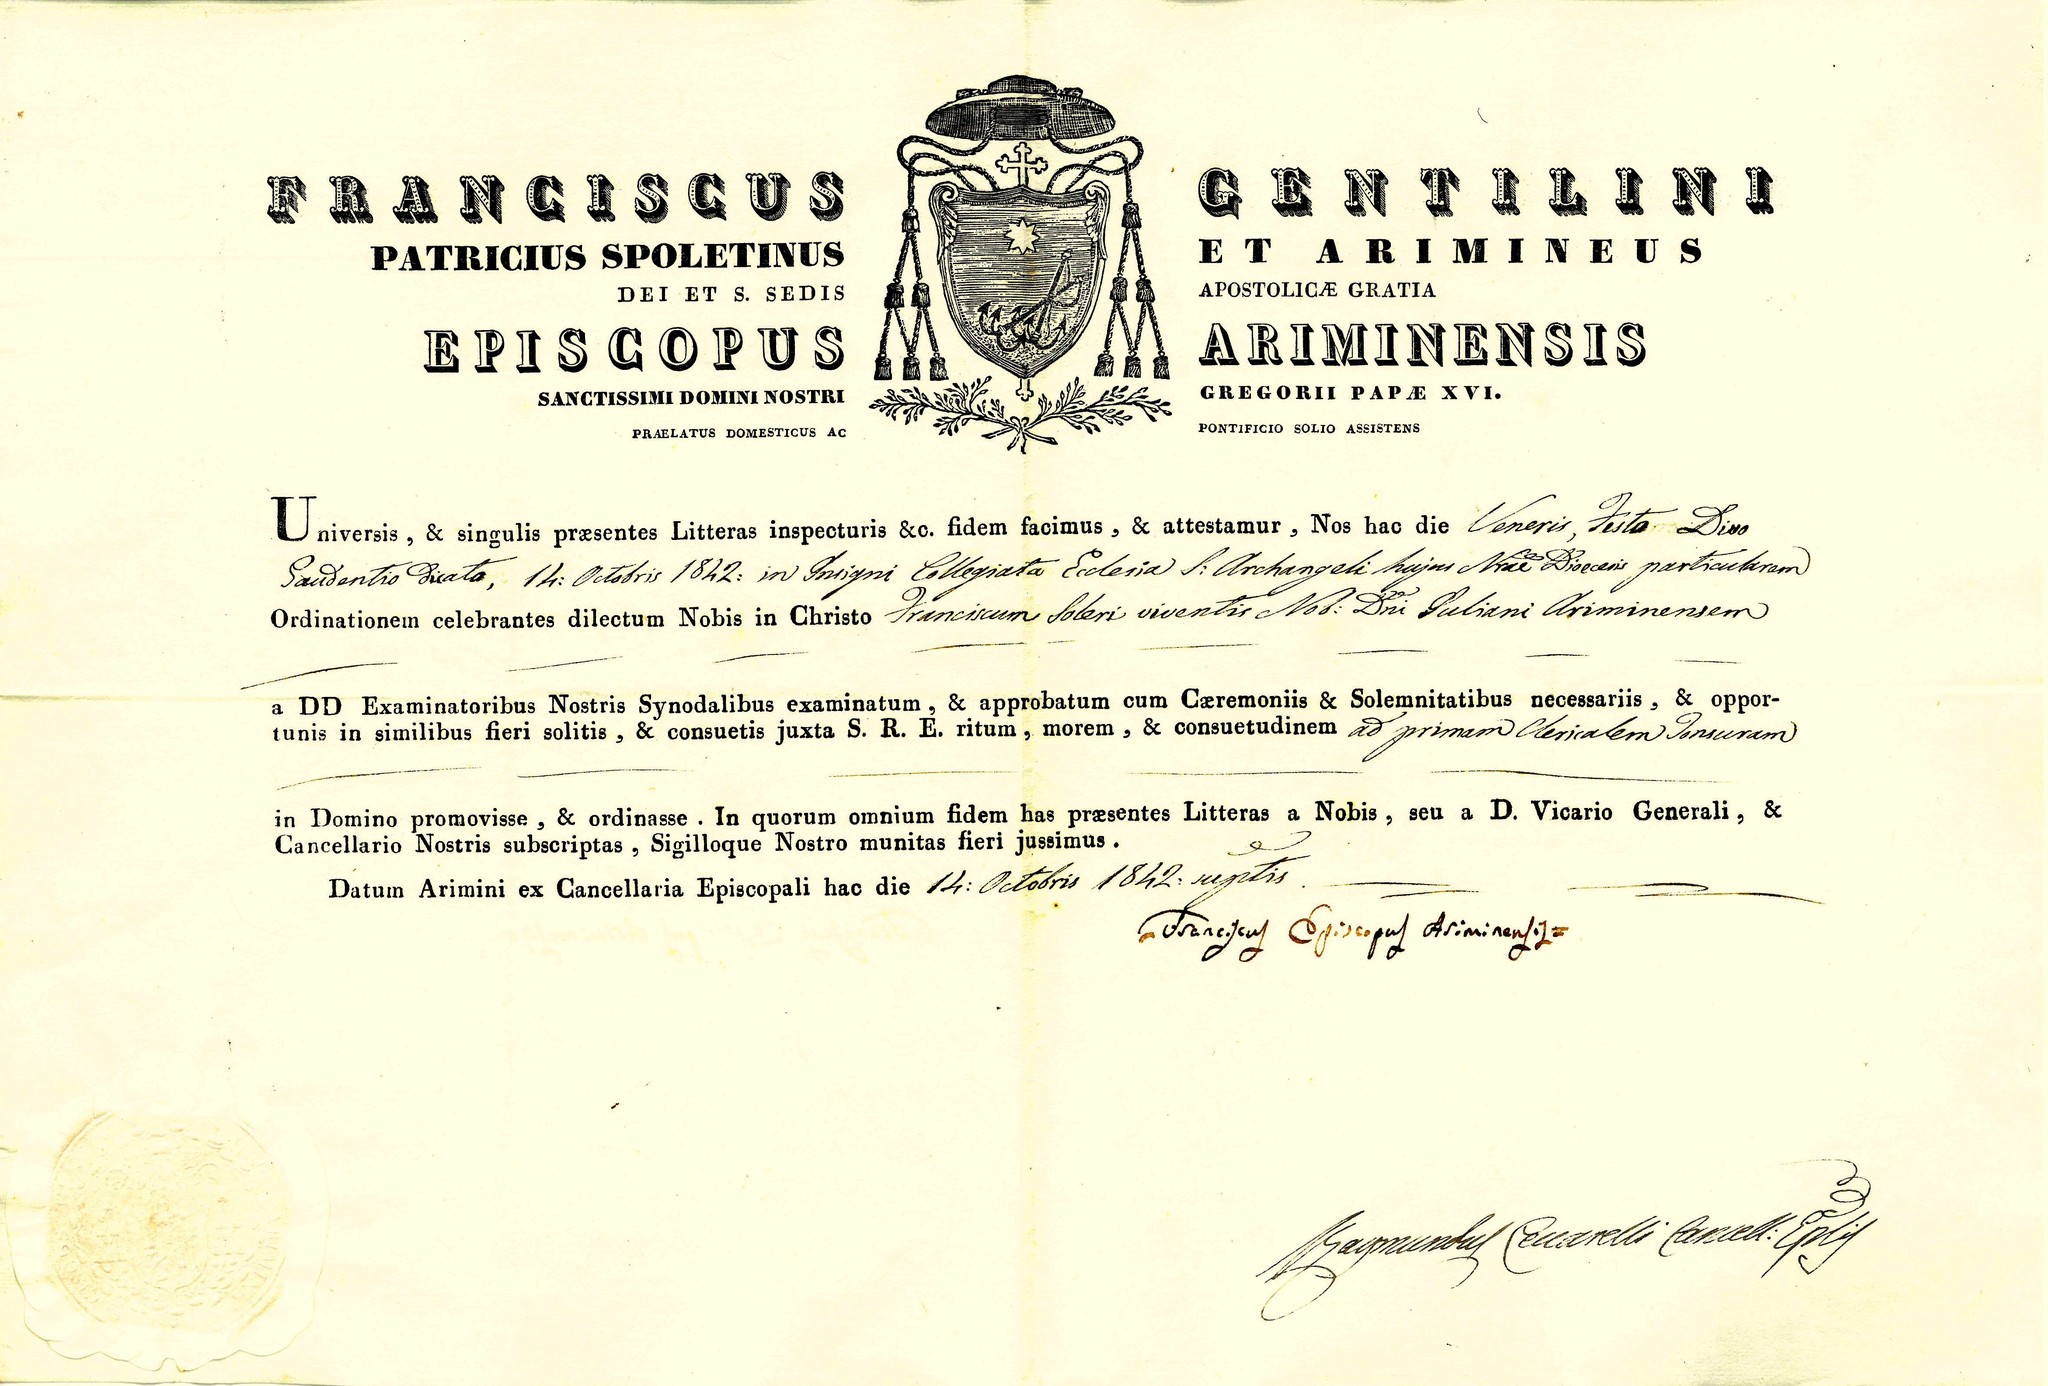 FRANCISCUS GENTILINI
PATRICIUS SPOLETINUS ET ARIMINEUS
DEI ET S. SEDIS APOSTOLICÆ GRATIA
EPISCOPUS ARIMINENSIS
SANCTISSIMI DOMINI NOSTRI GREGORII PAPÆ XVI.
PRAELATUS DOMESTICUS AC PONTIFICIO SOLIO ASSISTENS
Universis, & singulis præsentes Litteras inspecturis &c. fidem facimus, & attestamur, Nos hac die Veneris, Festo Divo
Gaudentio dicato, 14: Octobris 1842: in Insigni Collegiata Eclesia S: Archangeli hujus Nrae Diocecis particularem
Ordinationem celebrantes dilectum Nobis in Christo Franciscum Soleri viventis Nob: Dni Juliani Ariminensem
a DD Examinatoribus Nostris Synodalibus examinatum, & approbatum cum Cæremoniis & Solemnitatibus necessariis, & oppor-
tunis in similibus fieri solitis, & consuetis juxta S. R. E. ritum, morem, & consuetudinem ad primam Clericalem Tonsuram
in Domino promovisse, & ordinasse. In quorum omnium fidem has præsentes Litteras a Nobis, seu a D. Vicario Generali, &
Cancellario Nostris subscriptas, Sigilloque Nostro munitas fieri jussimus.
Datum Arimini ex Cancellaria Episcopali hac die 14: Octobris 1842:
Franciscus Episcopus Ariminensis
Raymundus Ceccarelli Cancell: Eplis